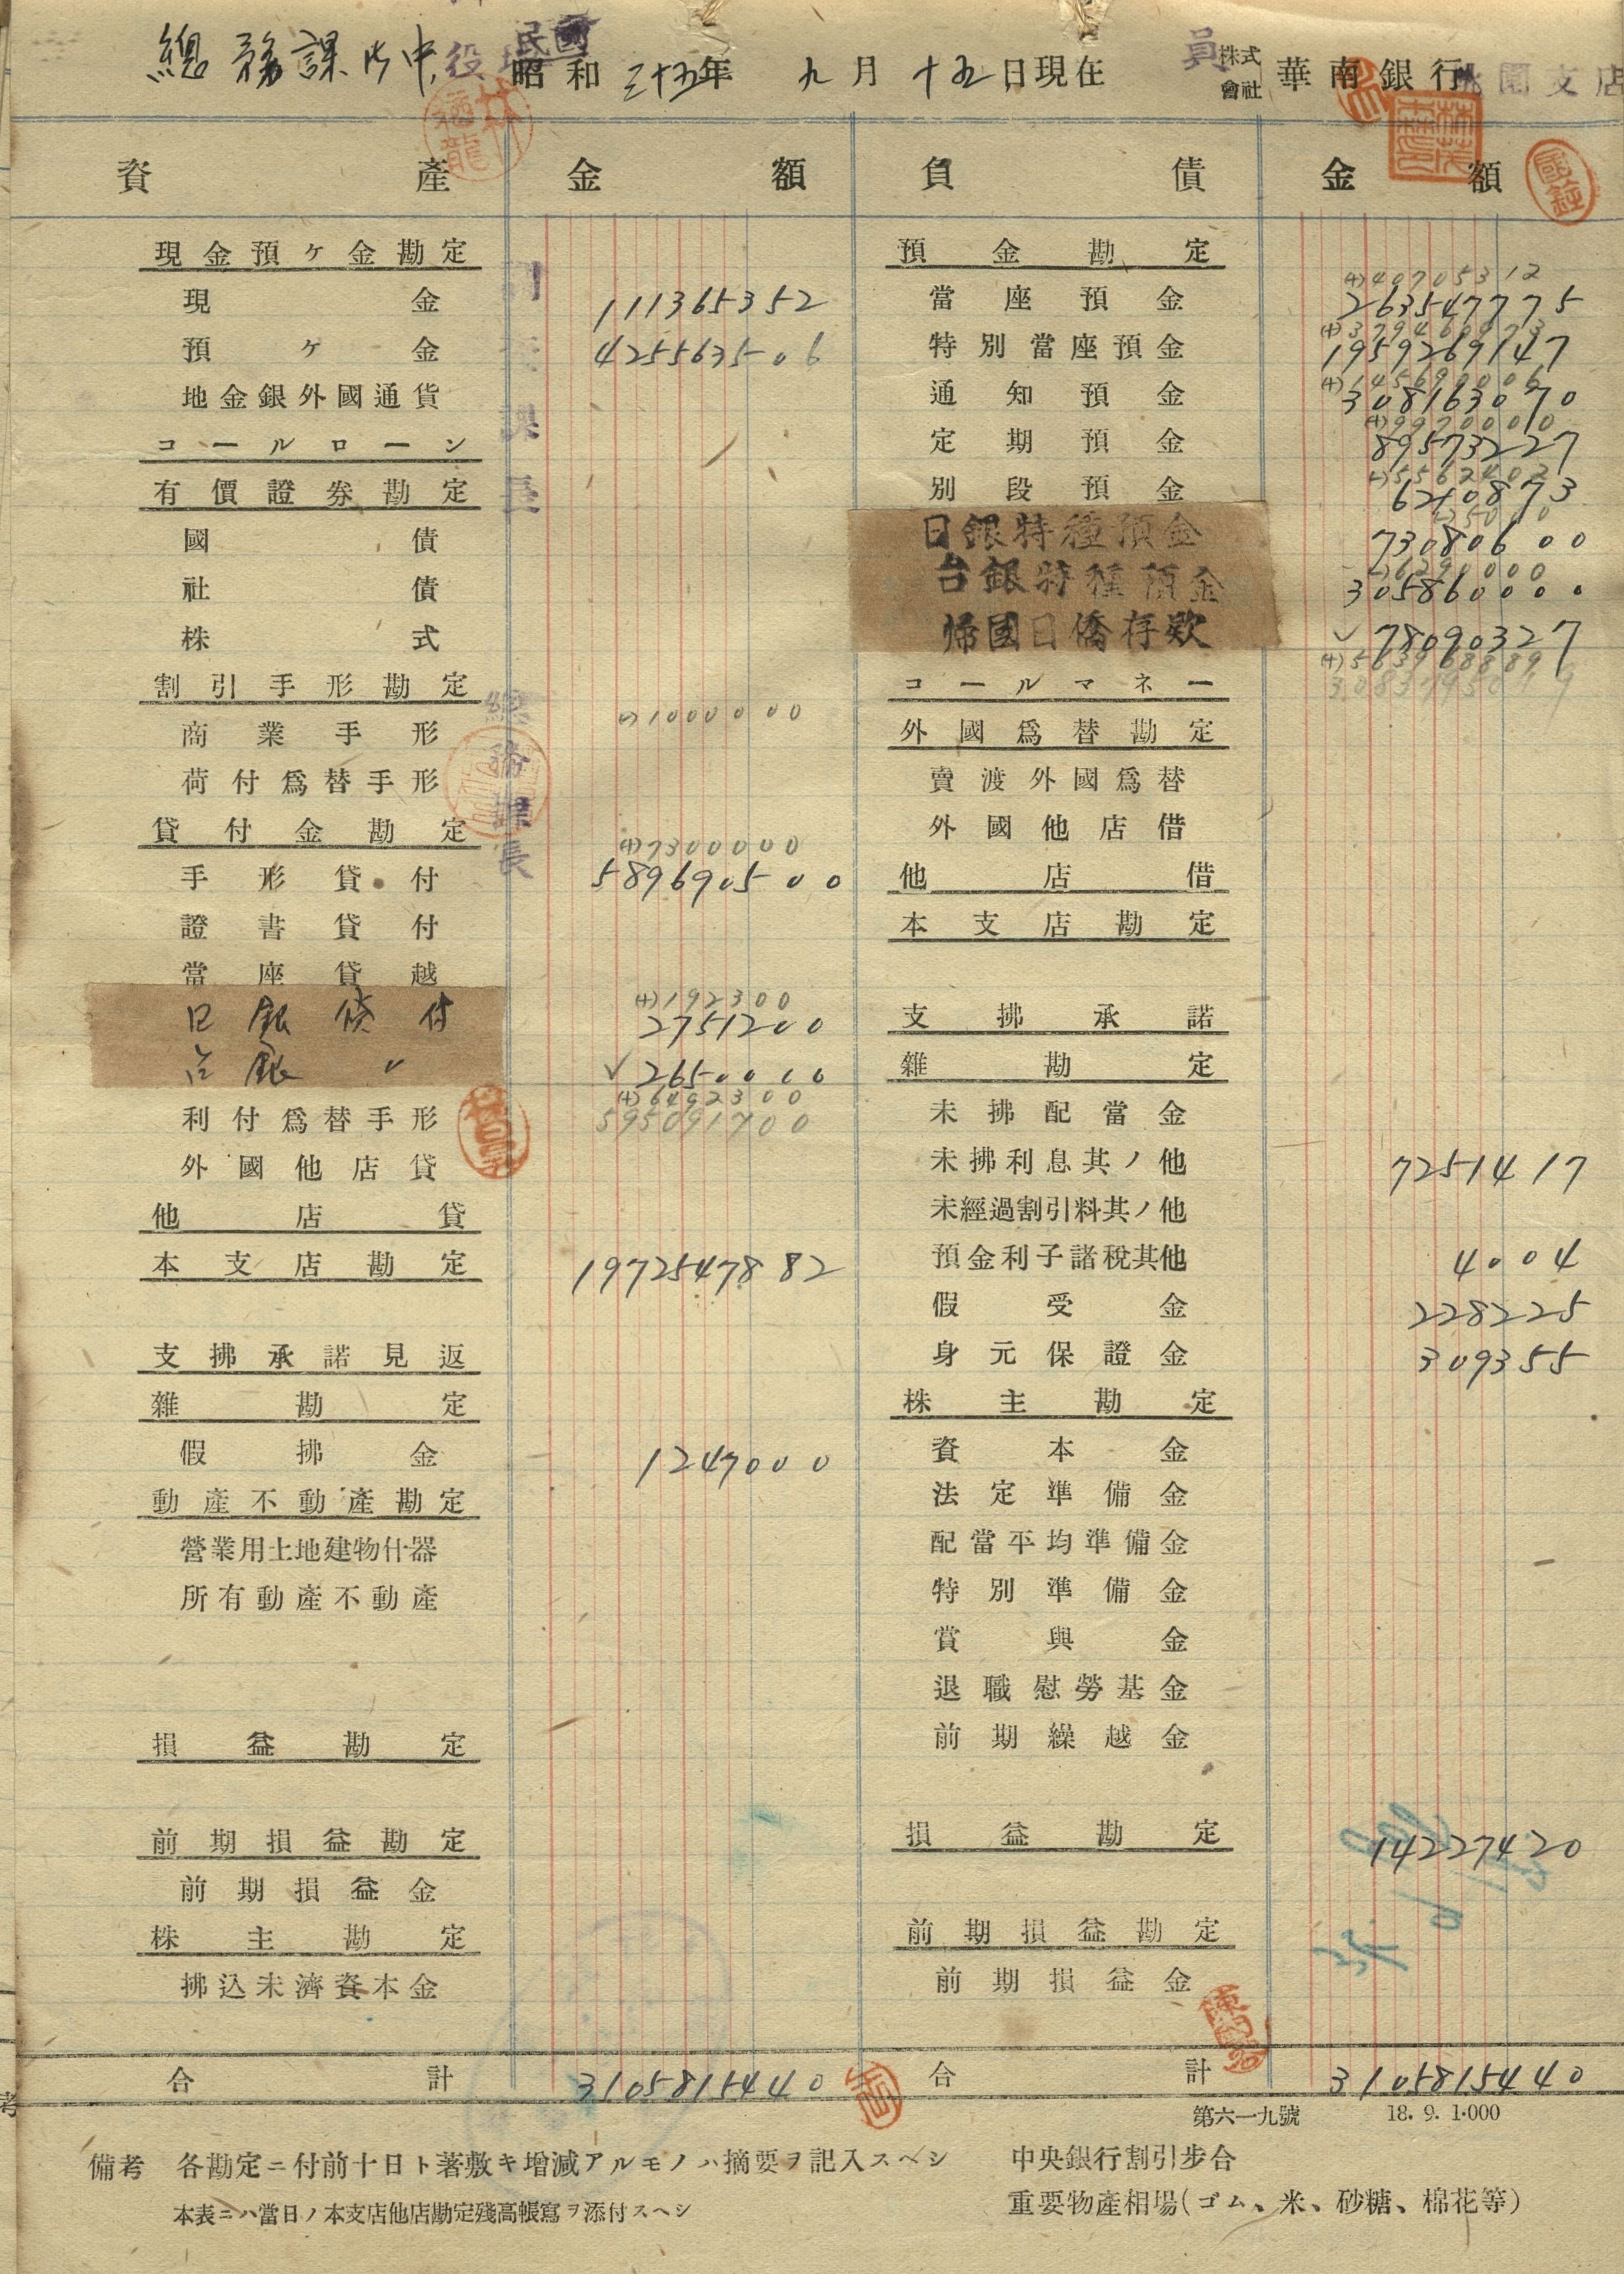 總務課御中
民國
昭和三十五年 九月十五日現在
株式會社 華南銀行桃園支店
資產 金額 負債 金額
現金預ケ金勘定
現金 111365352
預ケ金 425563506
地金銀外國通貨
コールローン
有價證券勘定
國債
社債
株式
割引手形勘定
(-)1000000
商業手形
荷付爲替手形
貸付金勘定
(+)7300000
手形貸付 589690500
證書貸付
當座貸越
(+)192300
日銀貸付 2751200
台銀〃 2650000
(+)6492300
利付爲替手形 595091700
外國他店貸
他店貸
本支店勘定 1972547882
支拂承諾見返
雜勘定
假拂金 1247000
動產不動產勘定
營業用土地建物什器
所有動產不動產
損益勘定
前期損益勘定
前期損益金
株主勘定
拂込未濟資本金
合計 3105815440
預金勘定
(+)40705312
當座預金 263547775
特別當座預金 1959269147
通知預金 308163070
(+)99700010
定期預金 89573227
別段預金 6210873
日銀特種預金 73080600
(-)6290000
台銀特種預金 305860000
帰國日僑存欵 78090327
コールマネー
外國爲替勘定
賣渡外國爲替
外國他店借
他店借
本支店勘定
支拂承諾
雜勘定
未拂配當金
未拂利息其ノ他 7251417
未經過割引料其ノ他
預金利子諸稅其他 4004
假受金 228225
身元保證金 309355
株主勘定
資本金
法定準備金
配當平均準備金
特別準備金
賞與金
退職慰勞基金
前期繰越金
損益勘定 14227420
前期損益勘定
前期損益金
合計 3105815440
第六一九號 18.9.1.000
備考 各勘定ニ付前十日ト著敷キ增減アルモノハ摘要ヲ記入スヘシ
本表ニハ當日ノ本支店他店勘定殘高帳寫ヲ添付スヘシ
中央銀行割引步合
重要物產相場(ゴム、米、砂糖、棉花等)
總務課長